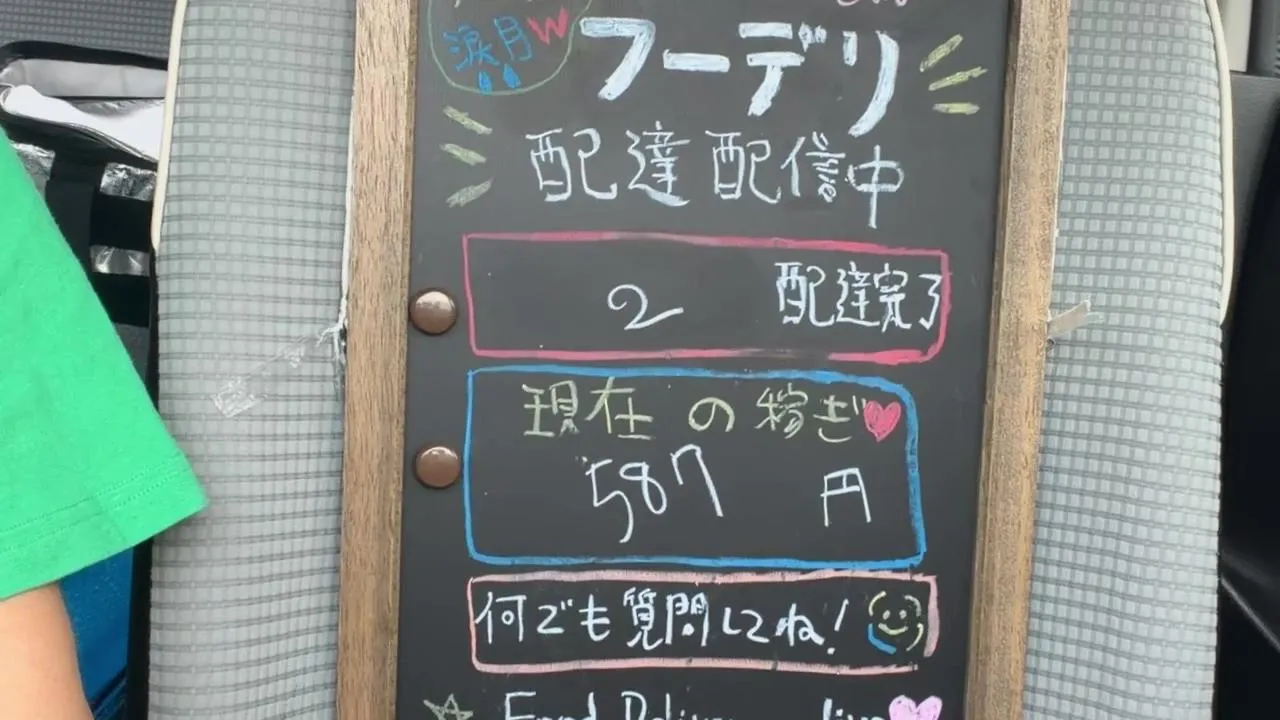 涙月W
フーデリ
配達配信中
2 配達完了
現在の稼ぎ
587 円
何でも質問してね!
Food Delivery live